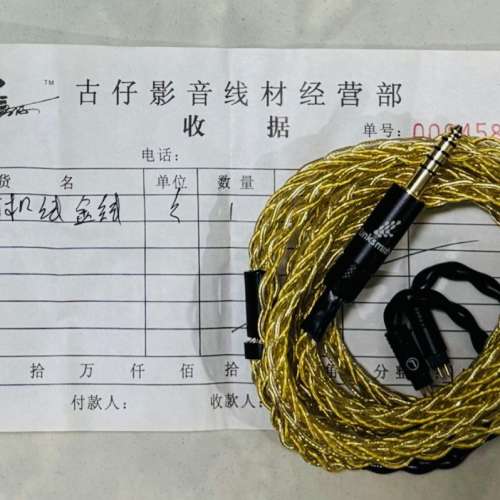 TM
古仔影音线材经营部
收 据 单号: 00
电话:
货 名 单位 数量
机线 金线 1
拾 万 仟 佰 拾 角 分 整
付款人: 收款人: